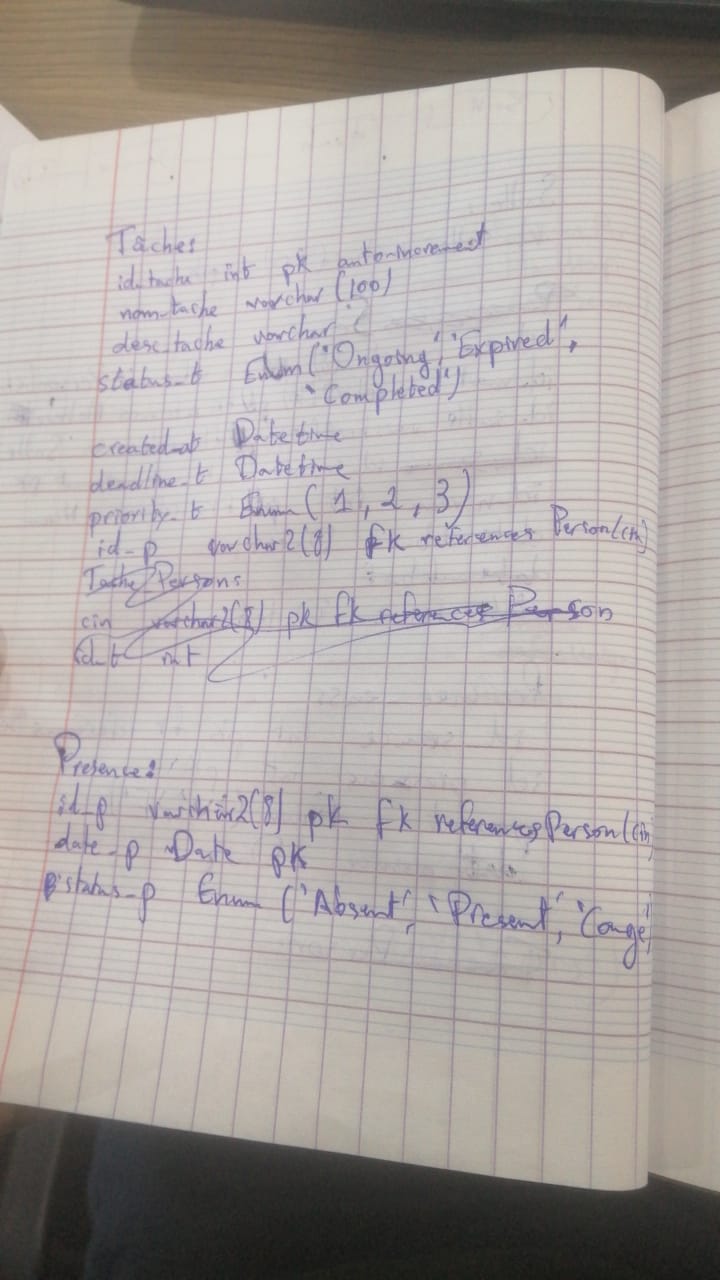 Tâches
id_tache int pk auto-increment
nom_tache varchar (100)
desc_tache varchar
status_t Enum ("Ongoing", "Expired",
"Completed")
created_at Datetime
deadline_t Datetime
priority_t Enum (1, 2, 3)
id_p varchar2(8) fk references Person(cin)
Tache Persons
cin varchar2(8) pk fk references Person
id_t int
Presence:
id_p varchar2(8) pk fk references Person(cin)
date_p Date pk
status_p Enum ("Absent", "Present", "Congé"